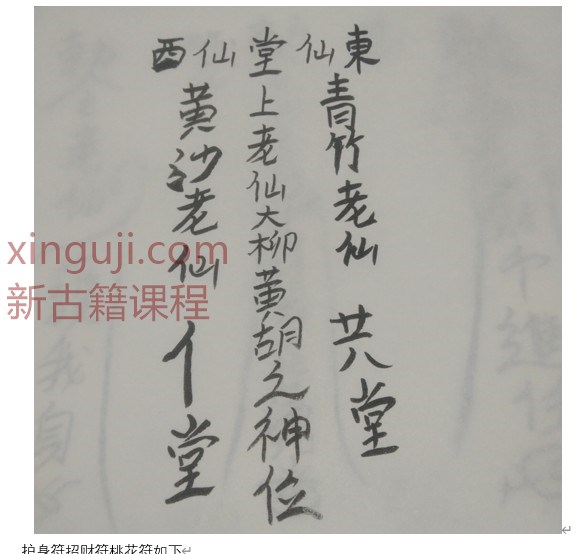 東仙堂仙西
青竹老仙 廿八堂
上老仙大柳黄胡之神位
黄沙老仙 亻堂
xinguji.com
新古籍课程
护身符招财符桃花符如下